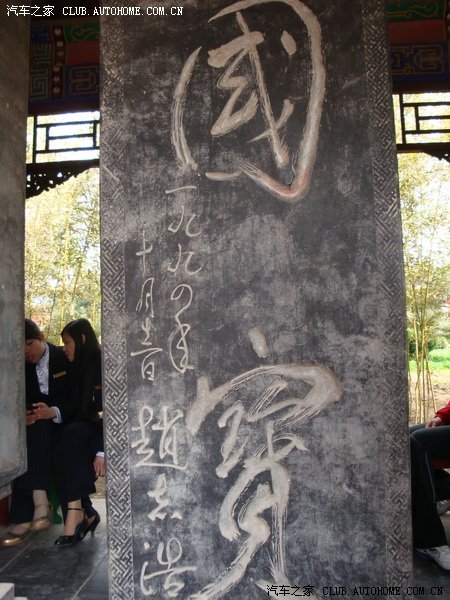 汽车之家 CLUB.AUTOHOME.COM.CN
國寶
一九九四年
十月吉日
趙志浩
汽车之家 CLUB.AUTOHOME.COM.CN